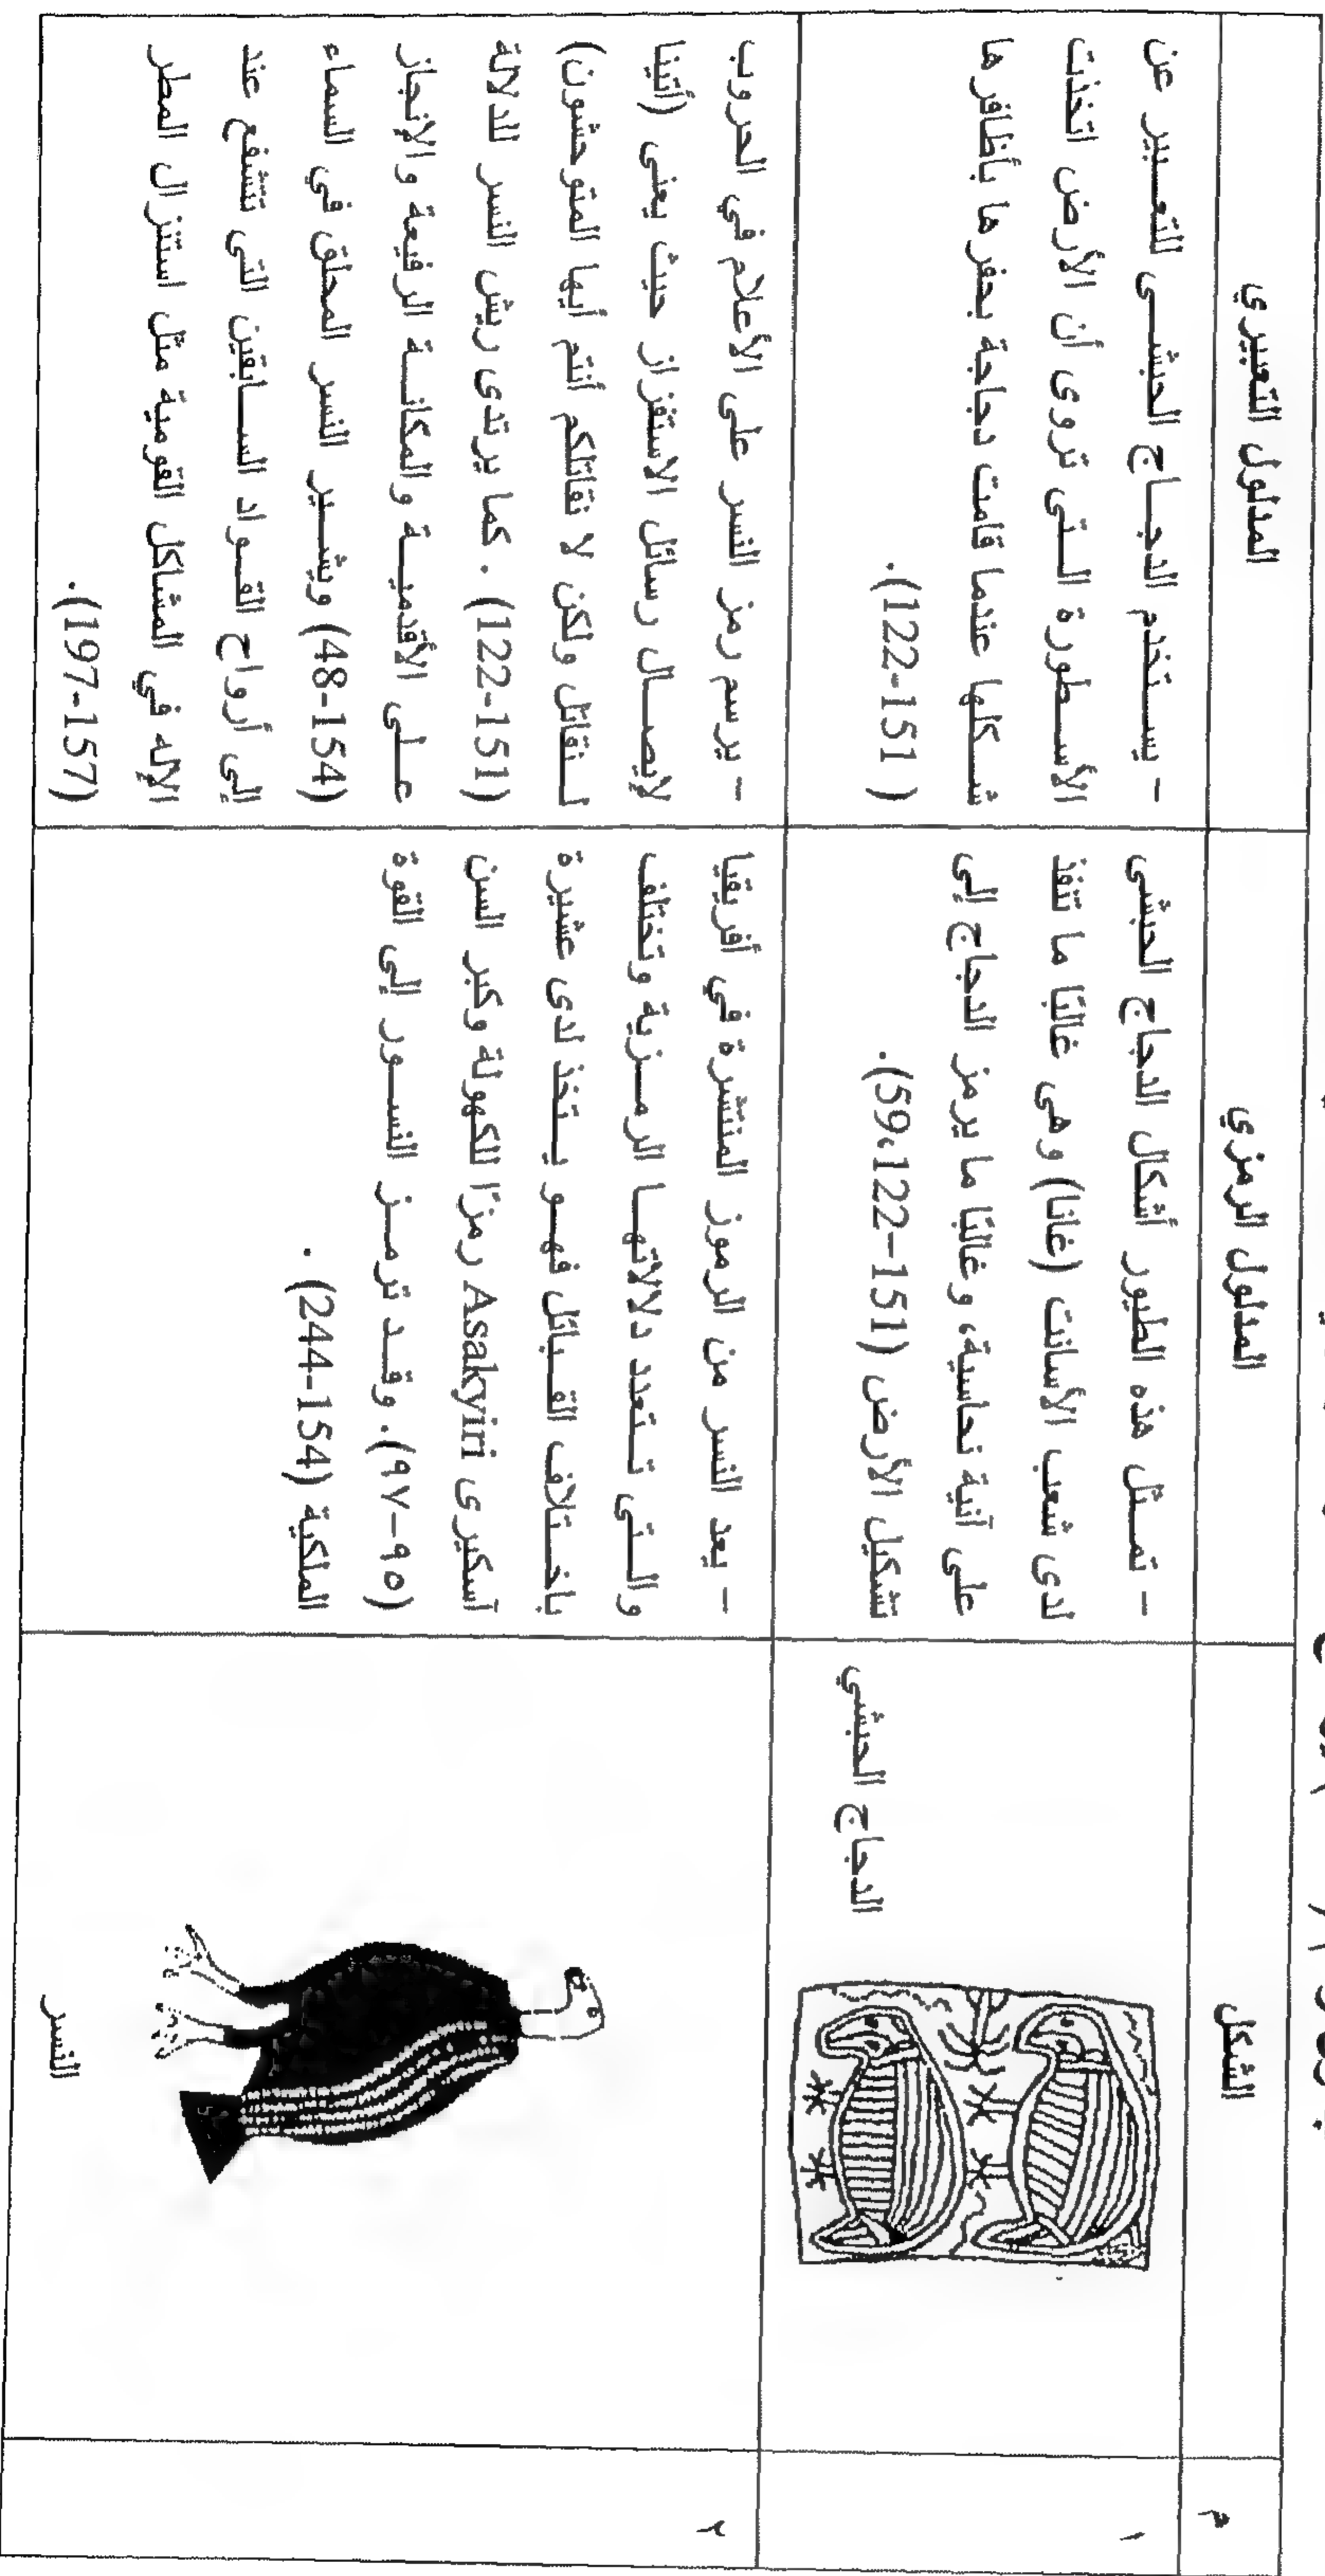 م
الشكل
المدلول الرمزي
المدلول التعبيري
١
الدجاج الحبشي
- تمثل هذه الطيور أشكال الدجاج الحبشى
لدى شعب الأسانت (غانا) وهى غالبًا ما تنفذ
على آنية نحاسية، وغالبًا ما يرمز الدجاج إلى
تشكيل الأرض (151-122،59).
- يستخدم الدجاج الحبشى للتعبير عن
الأسطورة التى تروى أن الأرض اتخذت
شكلها عندما قامت دجاجة بحفرها بأظافرها
(122-151).
٢
النسر
- يعد النسر من الرموز المنتشرة في أفريقيا
والتى تتعدد دلالاتها الرمزية وتختلف
باختلاف القبائل فهو يتخذ لدى عشيرة
آسكيرى Asakyiri رمزًا للكهولة وكبر السن
(٩٥-٩٧). وقد ترمز النسور إلى القوة
الملكية (154-244).
- يرسم رمز النسر على الأعلام في الحروب
لإيصال رسائل الاستفزاز حيث يعنى (أتينا
لنقاتل ولكن لا نقاتلكم أنتم أيها المتوحشون)
(122-151). كما يرتدى ريش النسر للدلالة
على الأقدمية والمكانة الرفيعة والإنجاز
(48-154) ويشير النسر المحلق في السماء
إلى أرواح القواد السابقين التى تتشفع عند
الإله في المشاكل القومية مثل استنزال المطر
(197-157).